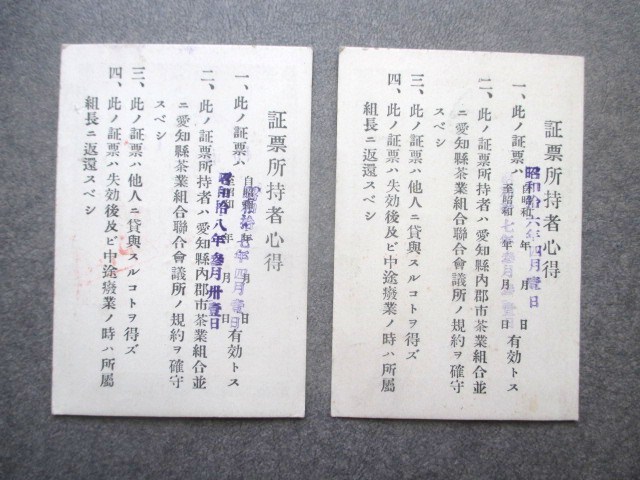 証票所持者心得
一、此ノ証票ハ
自昭和 年 月 日
至昭和 年 月 日
有効トス
昭和拾六年四月壹日
二、此ノ証票所持者ハ愛知縣內郡市茶業組合並
ニ愛知縣茶業組合聯合會議所ノ規約ヲ確守
スベシ
三、此ノ証票ハ他人ニ貸與スルコトヲ得ズ
四、此ノ証票ハ失効後及ビ中途癈業ノ時ハ所屬
組長ニ返還スベシ
証票所持者心得
一、此ノ証票ハ
自昭和 年 月 日
至昭和 年 月 日
有効トス
拾七年四月壹日
昭和拾八年叄月卅壹日
二、此ノ証票所持者ハ愛知縣內郡市茶業組合並
ニ愛知縣茶業組合聯合會議所ノ規約ヲ確守
スベシ
三、此ノ証票ハ他人ニ貸與スルコトヲ得ズ
四、此ノ証票ハ失効後及ビ中途癈業ノ時ハ所屬
組長ニ返還スベシ